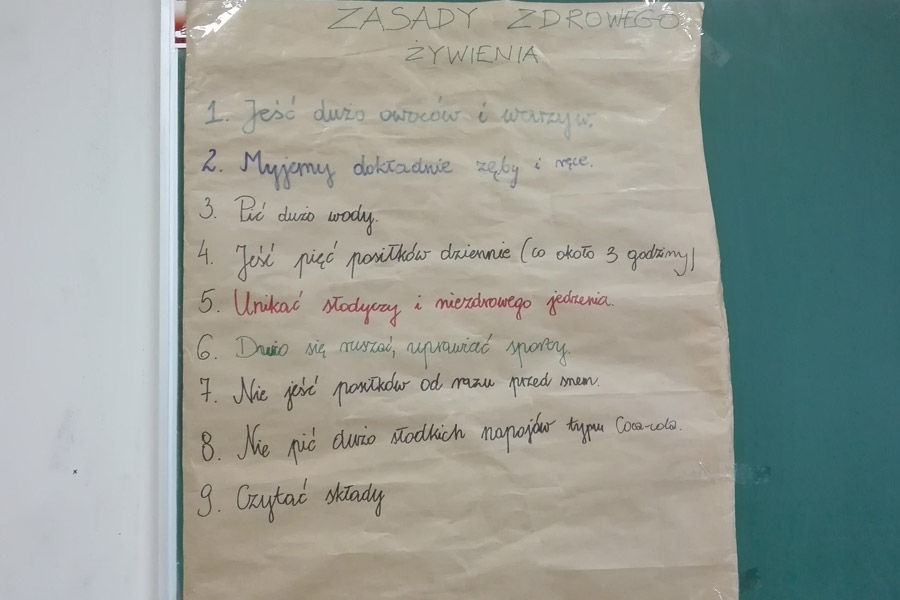 ZASADY ZDROWEGO
ŻYWIENIA
1. Jeść dużo owoców i warzyw.
2. Myjemy dokładnie zęby i ręce.
3. Pić dużo wody.
4. Jeść pięć posiłków dziennie (co około 3 godziny)
5. Unikać słodyczy i niezdrowego jedzenia.
6. Dużo się ruszać, uprawiać sporty.
7. Nie jeść posiłków od razu przed snem.
8. Nie pić dużo słodkich napojów typu Coca-cola.
9. Czytać składy